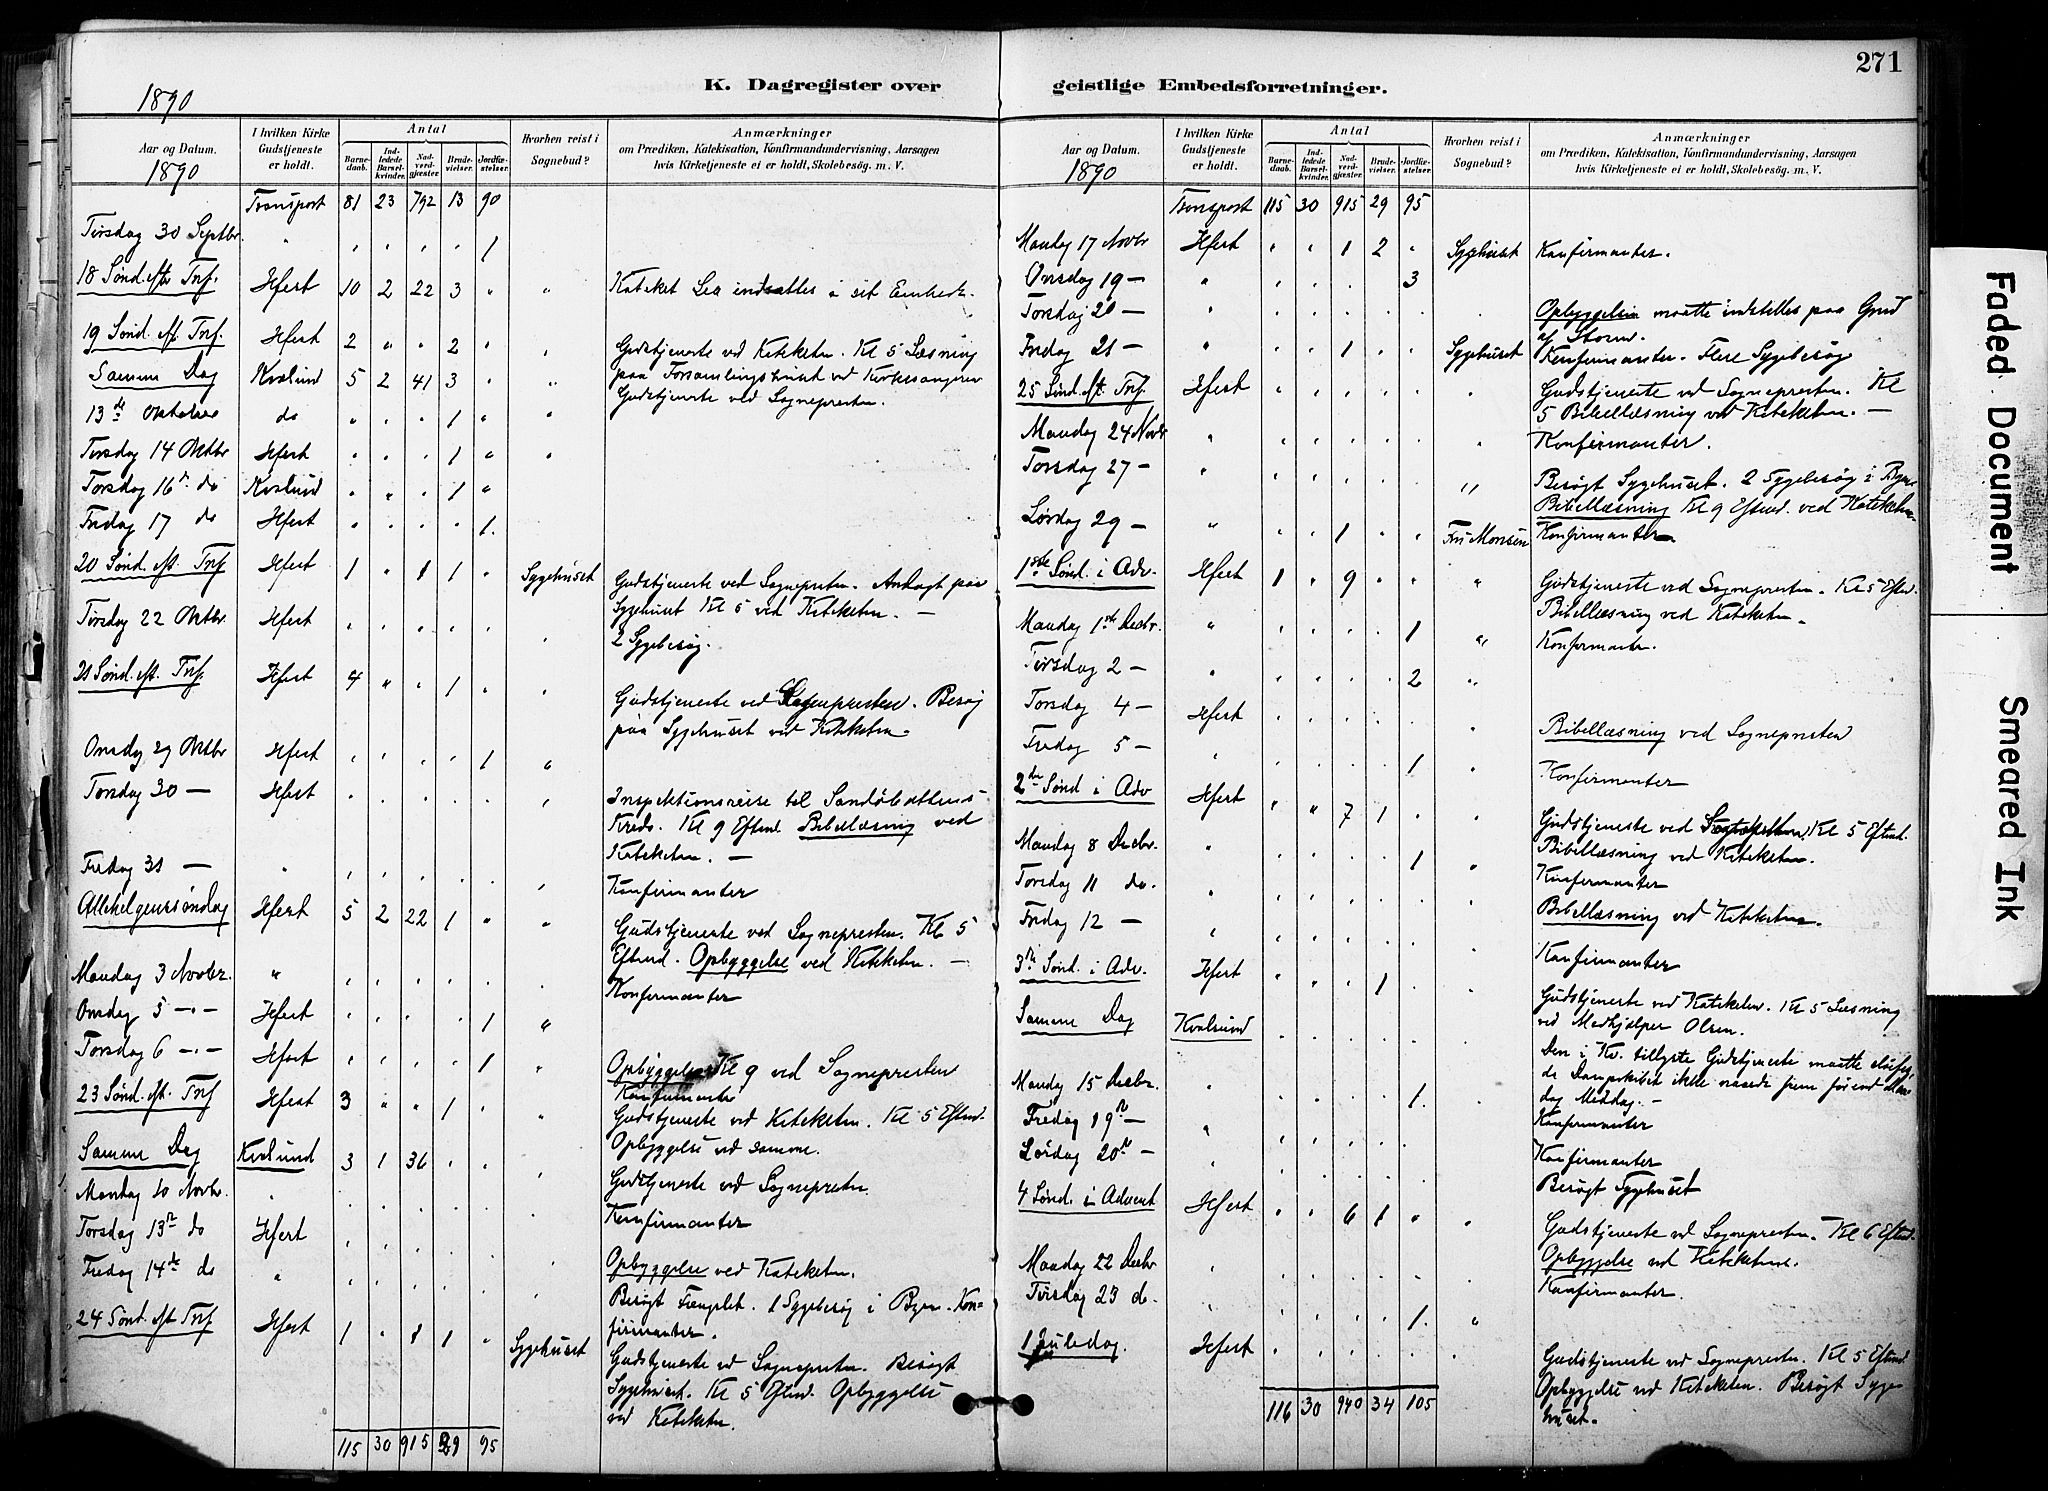 271
1890
K. Dagregister over geistlige Embedsforretninger.
Aar og Datum. 1890
I hvilken Kirke Gudstjeneste er holdt.
Antal
Barnedaab. Indledede Barselkvinder. Nadverdgjester. Brudevielser. Jordfæstelser.
Hvorhen reist i Sognebud?
Anmærkninger
om Prædiken, Katekisation, Konfirmandundervisning, Aarsagen
hvis Kirketjeneste ei er holdt, Skolebesøg. m. V.
Transport 81 23 792 13 90
Tirsdag 30 Septbr. " . . . . 1
18 Sønd. eft. Trf. Hfest 10 2 22 3 " " Kateket Lea indsættes i sit Embede.
19 Sønd. eft. Trf. Hfest 2 " " 2 . . Gudstjeneste ved Kateketen. Kl 5 Læsning
Samme Dag Kvalsund 5 2 41 3 . " paa Forsamlingshuset ved Kirkesangeren
Gudstjeneste ved Sognepresten.
13de Oktober do . . . 1 " "
Tirsdag 14 Oktbr Hfest . . . 1 " .
Torsdag 16 do Kvalsund . . . 1 "
Fredag 17 do Hfest . . . . 1.
20 Sønd. eft. Trf Hfest 1 . 1 1 . Sygehuset Gudstjeneste ved Sognepresten. Andagt paa
Sygehuset Kl 5 ved Kateketen. —
Tirsdag 22 Oktbr. Hfest . . . . . . 2 Sygebesøg.
21 Sønd. eft. Trf. Hfest 4 " . 1 . .
Gudstjeneste ved Sognepresten. Besøg
paa Sygehuset ved Kateketen.
Onsdag 29 Oktbr Hfest . . . . 1 "
Torsdag 30 — Hfest . . . . . . Inspektionsreise til
Kreds. Kl 9 Eftmd. Bibellæsning ved
Kateketen. —
Fredag 31 — . . . . . . Konfirmanter
Allehelgenssøndag Hfest 5 2 22 1 " " Gudstjeneste ved Sognepresten. Kl 5
Eftmd. Opbyggelse ved Kateketen. —
Mandag 3 Novbr. " . . . . . . Konfirmanter
Onsdag 5 — Hfest . . . . 1 "
Torsdag 6 — Hfest . . . . 1 " Opbyggelse Kl 9 ved Sognepresten
Konfirmanter
23 Sønd. eft. Trf Hfest 3 " " 1 . " Gudstjeneste ved Kateketen. Kl 5 Eftmd.
Opbyggelse ved samme.
Samme Dag Kvalsund 3 1 36 . . . Gudstjeneste ved Sognepresten
Mandag 10 Novbr. . . . . . . Konfirmanter
Torsdag 13 do Hfest . . . . . . Opbyggelse ved Kateketen.
Fredag 14de do " . . . . . . Besøgt Fængslet. 1 Sygebesøg i Byen. Kon=
firmanter.
24 Sønd. eft Trf Hfest 1 . 1 1 . Sygehuset Gudstjeneste ved Sognepresten. Besøgt
Sygehuset. Kl 5 Eftmd. Opbyggelse
ved Kateketen.
115 30 915 29 95
Aar og Datum. 1890
I hvilken Kirke Gudstjeneste er holdt.
Antal
Barnedaab. Indledede Barselkvinder. Nadverdgjester. Brudevielser. Jordfæstelser.
Hvorhen reist i Sognebud?
Anmærkninger
om Prædiken, Katekisation, Konfirmandundervisning, Aarsagen
hvis Kirketjeneste ei er holdt, Skolebesøg. m. V.
Transport 115 30 915 29 95
Mandag 17 Novbr Hfest . . 1 2 . Sygehuset Konfirmanter.
Onsdag 19 — " . . . . 3
Torsdag 20 — . . . . . . Opbyggelsen maatte indstilles paa Grund
af Storm.
Fredag 21 — " . . 1 . . Sygehuset Konfirmanter. Flere Sygebesøg
25 Sønd. eft. Trf. Hfest . . . . . . Gudstjeneste ved Sognepresten. Kl
5 Bibellæsning ved Kateketen. —
Mandag 24 Novbr " . . . . . " Konfirmanter.
Torsdag 27 — " . . . . . " Besøgt Sygehuset. 2 Sygebesøg i Byen.
Bibellæsning Kl 9 Eftmd. ved Kateketen
Lørdag 29 — " . . 1 . . Fru Monsen Konfirmanter
1ste Sønd. i Adv. Hfest 1 . 9 . . " Gudstjeneste ved Sognepresten. Kl 5 Eftmd.
Bibellæsning ved Kateketen.
Mandag 1ste Decbr. " . . . . 1 " Konfirmanter.
Tirsdag 2 — " . . . . 2 "
Torsdag 4 — Hfest . . . . . " Bibellæsning ved Sognepresten
Fredag 5 — . . . . . 1 . Konfirmanter
2den Sønd i Adv Hfest . " 7 1 . . Gudstjeneste ved Kl 5 Eftmd.
Bibellæsning ved Kateketen.
Mandag 8 Decbr. " . . . . 1 . Konfirmanter
Torsdag 11 do. " . . . . . . Bibellæsning ved Kateketen.
Fredag 12 — . . . . . . Konfirmanter
3die Sønd. i Adv. Hfest . . . 1 . . Gudstjeneste ved Kateketen. Kl 5 Læsning
ved Medhjælper Olsen.
Samme Dag Kvalsund . . . . . . Den i Kv. tillyste Gudstjeneste maatte sløifes,
da Dampskibet ikke naaede frem førend Man
dag Middag. —
Mandag 15 Decbr. " . . . . 1. . Konfirmanter
Fredag 19 — " . . . . . . Konfirmanter
Lørdag 20 — . . . . . . Besøgt Sygehuset
4 Sønd. i Advent Hfest . . 6 1 " " Gudstjeneste ved Sognepresten. Kl 6 Eftmd.
Opbyggelse ved Kateketen.
Mandag 22 Decbr . . . . . . Konfirmanter.
Tirsdag 23 do. . . . . 1. "
1 Juledag. Hfest . . . . . . Gudstjeneste ved Sognepresten. Kl 5 Eftmd
Opbyggelse ved Kateketen. Besøgt Syge
huset.
116 30 940 34 105
Faded Document
Smeared Ink